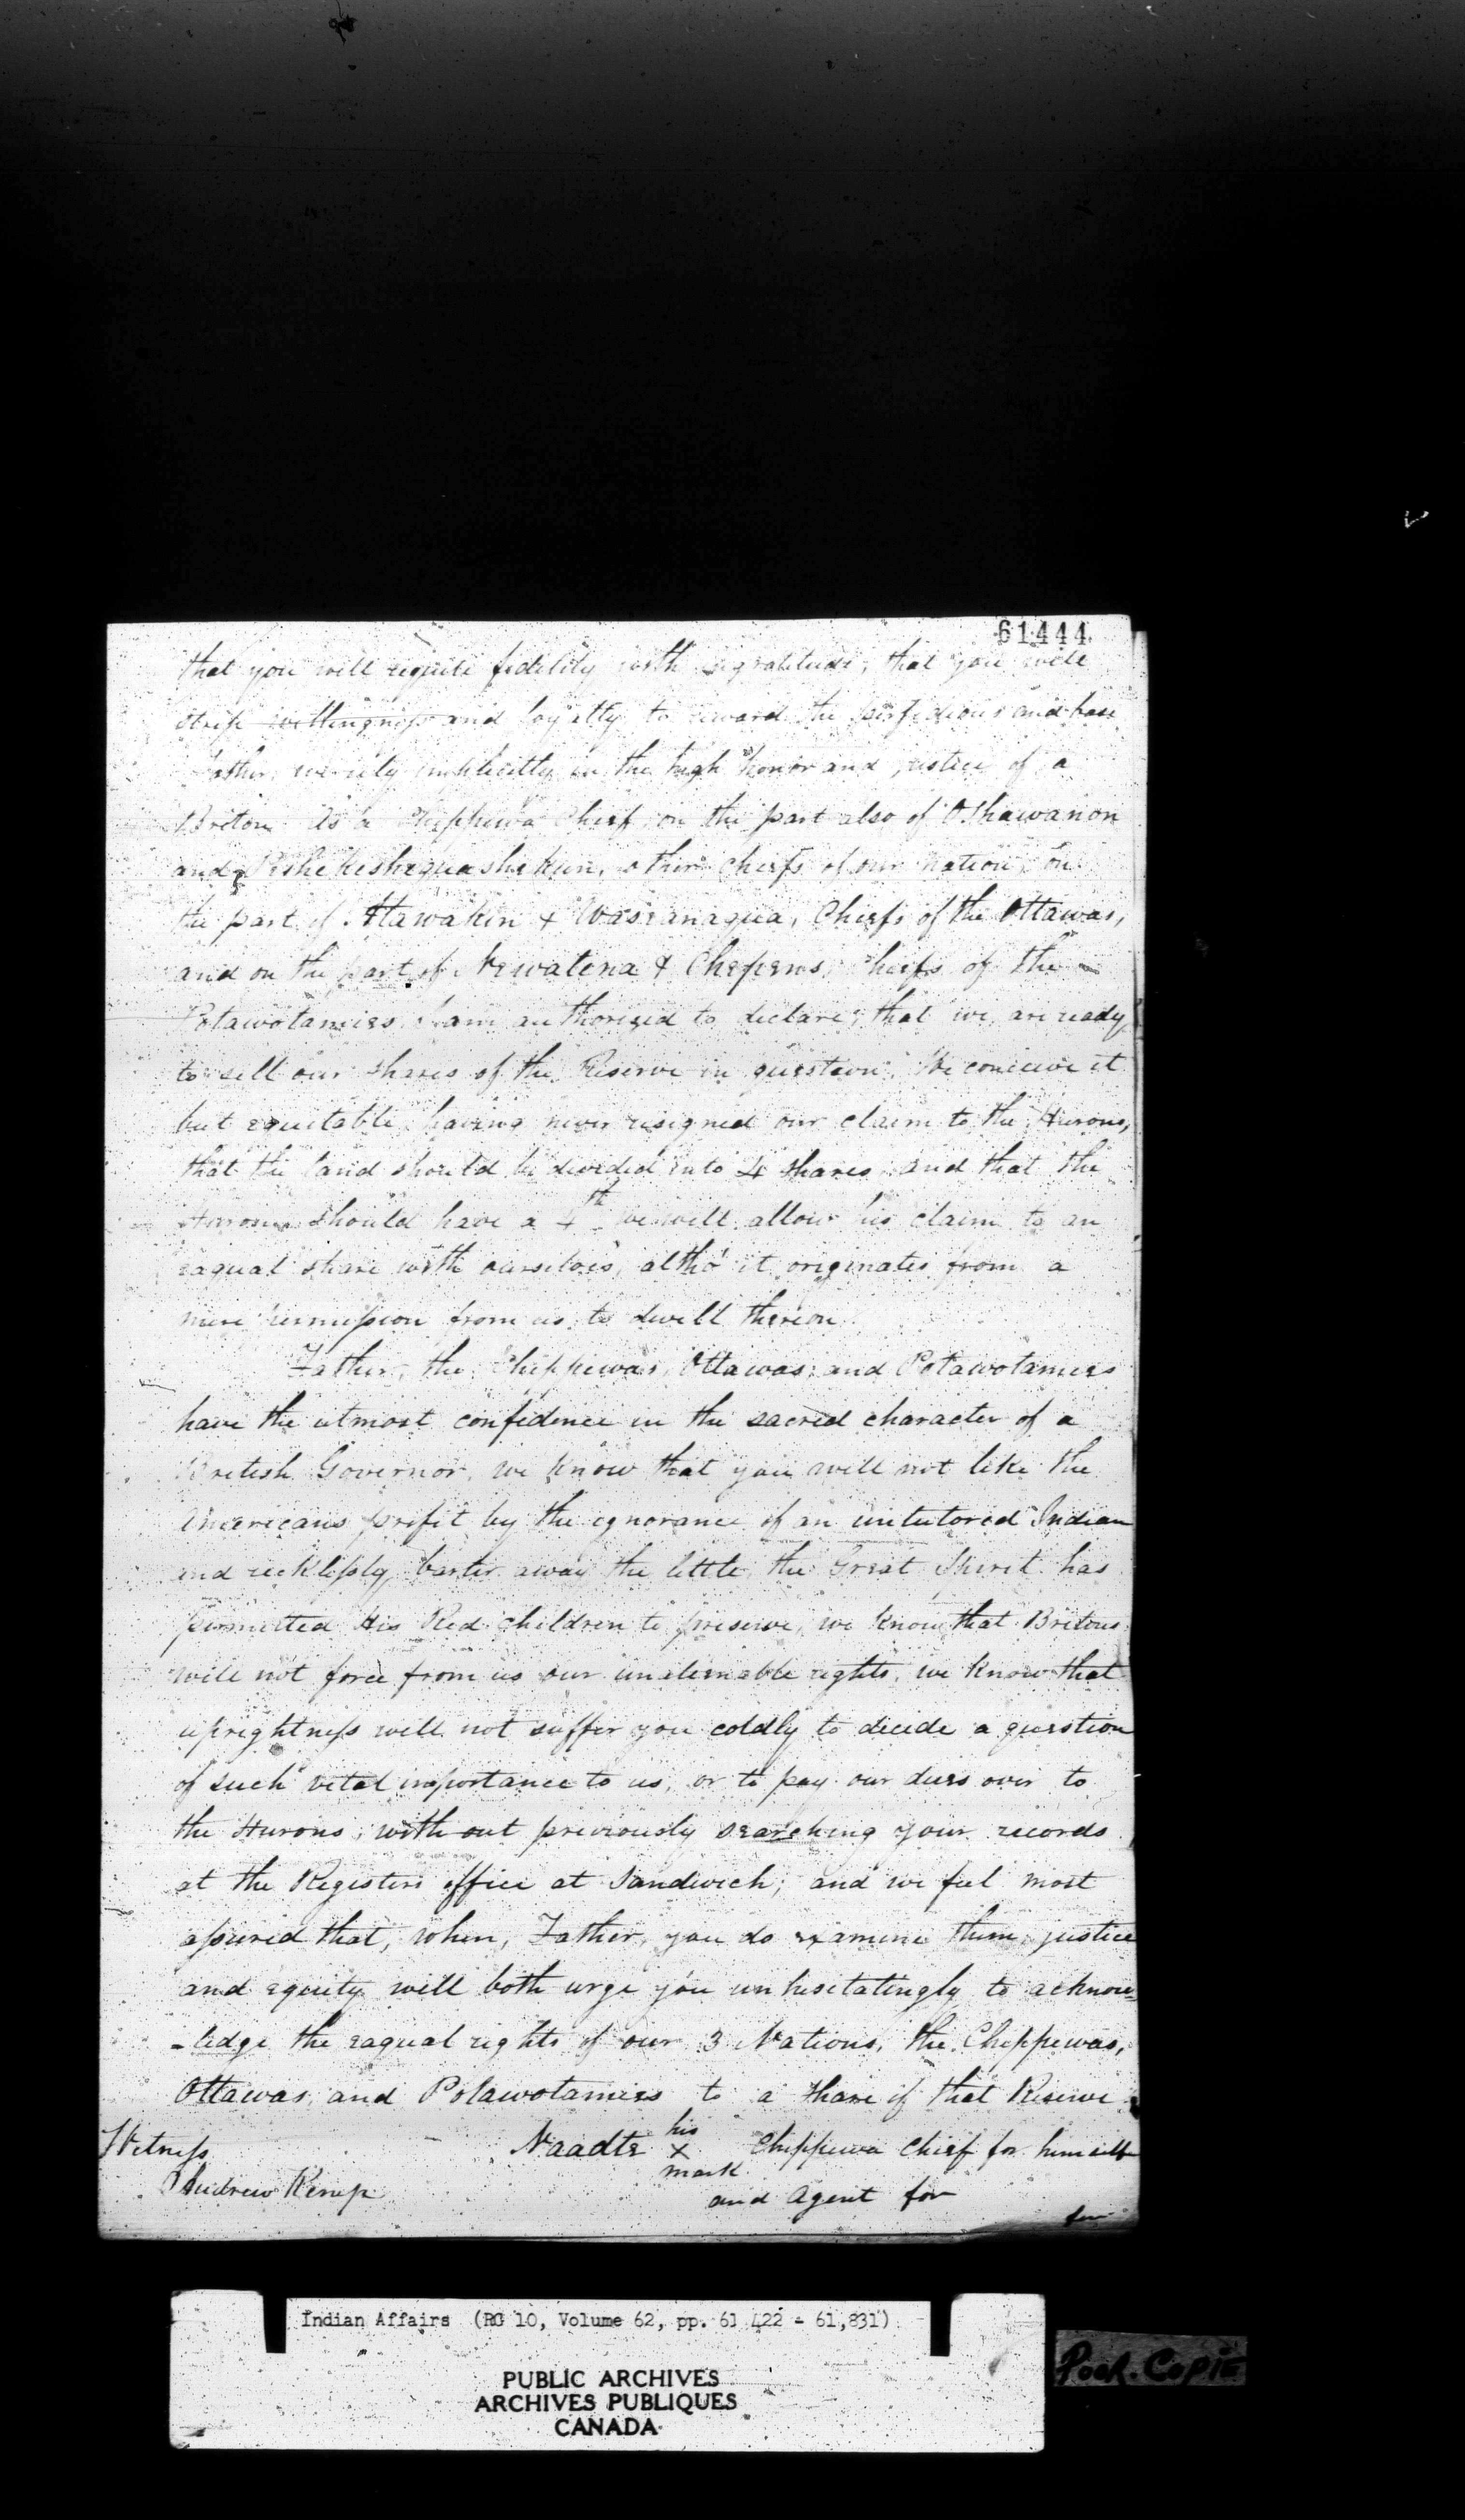 61444
that you will requite fidelity with ingratitude, that you will
strip willingness and loyalty to reward the perfidious and base
Father, we rely implicitly in the high honor and justice of a
Briton As a Chippewa Chief, on the part also of Oshawanon
and other chiefs of our nation, on
the part of Atawakin & Waseanaqua, Chiefs of the Ottawas,
and on the part of Newatena & Chepens, Chiefs of the
Potawotamies, I am authorized to declare, that we are ready
to sell our shares of the Reserve in question. We conceive it
but equitable, having never resigned our claim to the Hurons,
that the land should be divided into 4 shares and that the
Hurons should have a 4th we will allow his claim to an
eaqual share with ourselves, altho' it originates from a
mere permission from us to dwell thereon.
Father, the Chippewas, Ottawas, and Potawotamies
have the utmost confidence in the sacred character of a
British Governor, we know that you will not like the
Americans profit by the ignorance of an untutored Indian
and recklessly barter away the little the Great Spirit has
permitted His Red children to preserve, we know that Britons
will not force from us our unalienable rights, we know that
uprightness will not suffer you coldly to decide a question
of such vital importance to us, or to pay our dues over to
the Hurons, without previously searching your records
at the Registers office at Sandwich; and we feel most
assured that, when, Father, you do examine them, justice
and equity will both urge you unhesitatingly to acknow=
-ledge the eaqual rights of our 3 Nations, the Chippewas,
Ottawas, and Potawotamies to a share of that Reserve.
Witness Naadte his x mark Chippewa Chief for himself
Andrew Kemp and Agent for
Indian Affairs (RG 10, Volume 62, pp. 61 422 - 61,831)
PUBLIC ARCHIVES
ARCHIVES PUBLIQUES
CANADA
Poor. Copie